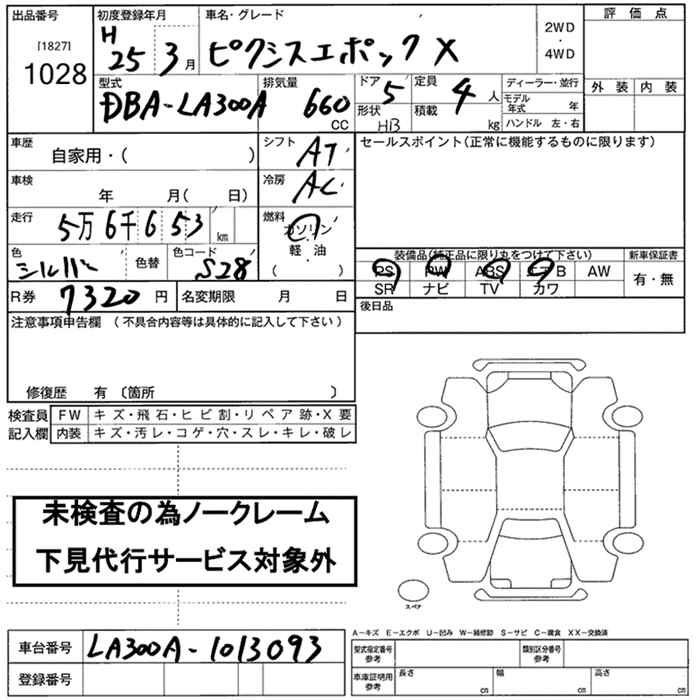 出品番号 初度登録年月 車名・グレード 評価点
[1827] H 2WD
1028 25 3月 ピクシスエポック X ・
4WD
型式 排気量 ドア 定員 ディーラー・並行 外装 内装
DBA-LA300A 660 CC 5 4人 モデル年式 年
形状 HB 積載 kg ハンドル 左・右
車歴 自家用・( ) シフト AT セールスポイント(正常に機能するものに限ります)
車検 年 月( 日) 冷房 AC
走行 5万6千653 km 燃料 ガソリン
軽・油
・
( )
色 シルバー 色替 色コード S28
装備品(純正品に限り丸をつけて下さい) 新車保証書
PS PW ABS エアB AW 有・無
SR ナビ TV カワ
R券 7320円 名変期限 月 日 後日品
注意事項申告欄(不具合内容等は具体的に記入して下さい)
修復歴 有〔箇所 〕
検査員 FW キズ・飛石・ヒビ割・リペア跡・X要
記入欄 内装 キズ・汚レ・コゲ・穴・スレ・キレ・破レ
未検査の為ノークレーム
下見代行サービス対象外
スペア
A-キズ E-エクボ U-凹み W-補修跡 S-サビ C-腐食 XX-交換済
車台番号 LA300A-1013093 型式指定番号参考 類別区分番号参考
登録番号 車庫証明用参考 長さ cm 幅 cm 高さ cm